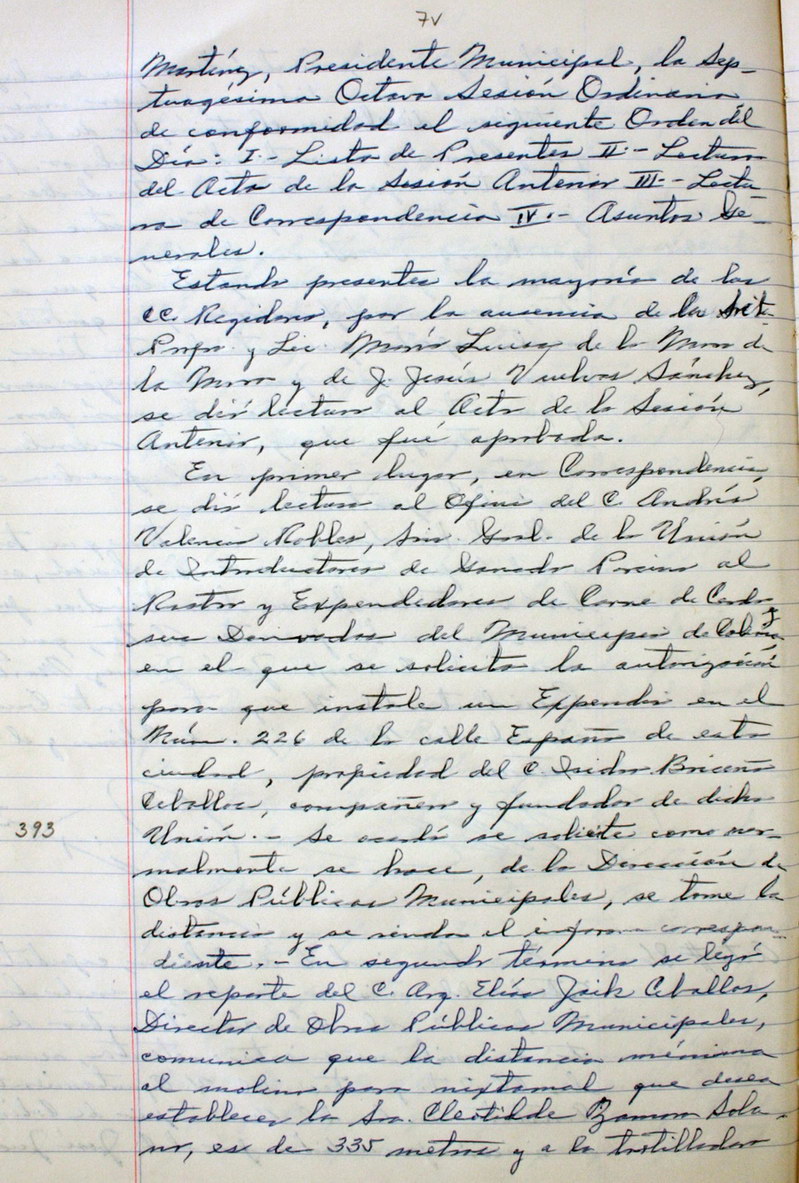 7v
Martínez, Presidente Municipal, la Sep-
tuagésima Octava Sesión Ordinaria
de conformidad el siguiente Orden del
Día: I.- Lista de Presentes II.- Lectura
del Acta de la Sesión Anterior III.- Lectu-
ra de Correspondencia IV.- Asuntos Ge-
nerales.
Estando presentes la mayoría de los
CC. Regidores, por la ausencia de la Srita.
Profra. y Lic. María Luisa de la Mora de
la Mora y de J. Jesús Vuelvas Sánchez,
se dió lectura al Acta de la Sesión
Anterior, que fué aprobada.
En primer lugar, en Correspondencia,
se dió lectura al Oficio del C. Andrés
Valencia Robles, Srio. Gral. de la Unión
de Introductores de Ganado Porcino al
Rastro y Expendedores de Carne de Cerdo y
sus Derivados del Municipio de Colima,
en el que se solicita la autorización
para que instale un Expendio en el
Núm. 226 de la calle España de esta
ciudad, propiedad del C. Isidro Briceño
Ceballos, compañero y fundador de dicha
393
Unión.- Se acordó se solicite como nor-
malmente se hace, de la Dirección de
Obras Públicas Municipales, se tome la
distancia y se rinda el informe correspon-
diente.- En segundo término se leyó
el reporte del C. Arq. Elías Jaik Ceballos,
Director de Obras Públicas Municipales,
comunica que la distancia mínima
al molino para nixtamal que desea
establecer la Sra. Cleotilde Zamora Sola-
no, es de 335 metros y a la tortilladora